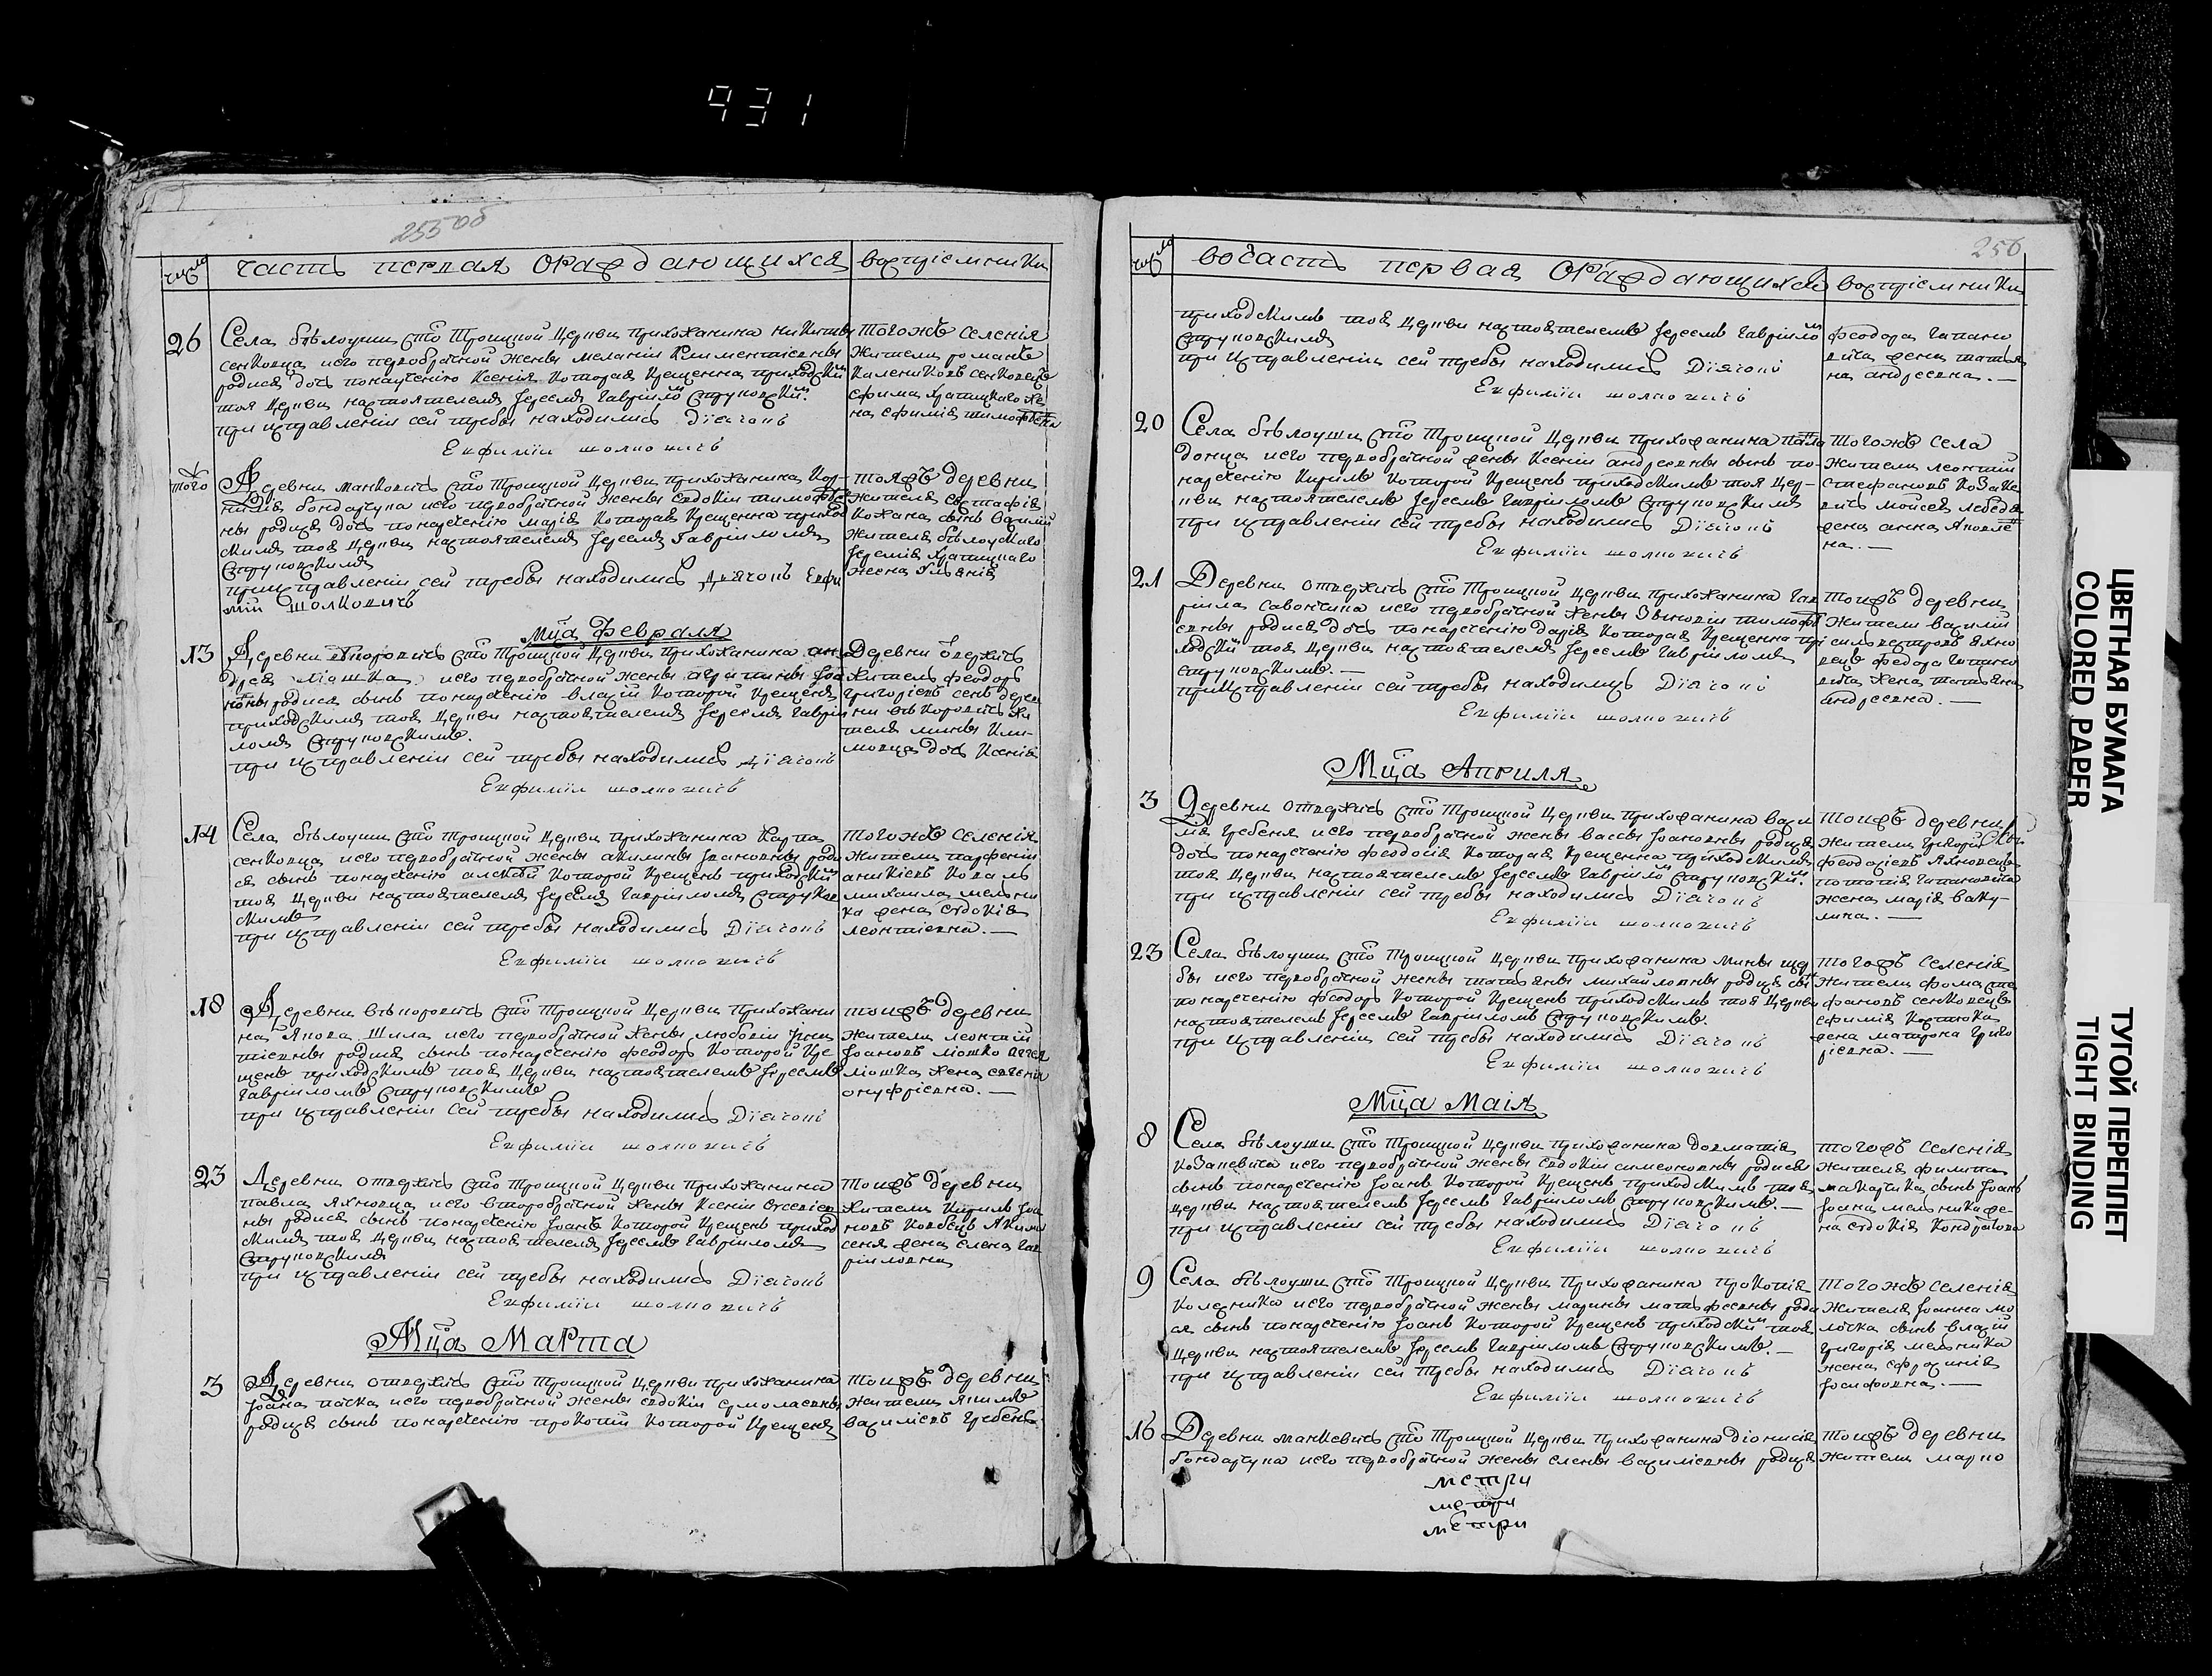 931
255 об
число
часть первая ораждающихся
восприемники
26
Села бѣлоуши сто Троицкой Церкви прихожанина Никиты
сенковца и его первобрачной жены мелании Климентиевны
родися дочь по наречению Ксения Которая Крещенна приходским
тоя Церкви настоятелемъ Іереемъ Гавриилом Струковским
при исправлении сей требы находились Діяконъ
Екфимій шолкович
тогожъ селения
жители романъ
сенковецъ
ефима храпицкаго же
на ефимия тимофеевна
того
Деревни манкович сто Троицкой Церкви прихожанина
бондарчука и его первобрачной жены евдокии тимофее
ны родися дочь по наречению мария Которая Крещенна приход
скимъ тоя Церкви настоятелемъ Іереемъ Гаврииломъ
Струковскимъ
при исправлении сей требы находились Діяконъ Екфи
мий шолковичъ
тояжъ деревни
жители
Кожана сынъ василий
жителя бѣлоускаго
Іеремия храпицкаго
жена Ульяния
Мца Февраля
13
Деревни сто Троицкой Церкви прихожанина ан
дрея и его первобрачной жены Іоа
новны родися сынъ по наречению власий Которой Крещенъ
приходскимъ тоя Церкви настоятелемъ Іереемъ Гаврии
ломъ Струковскимъ.
при исправлении сей требы находились діяконъ
Екфимій шолкович
Деревни
житель феодоръ
григориевъ дерев
ни жи
теля мины Кли
мовца дочь Ксения
14
Села бѣлоуши сто Троицкой Церкви прихожанина Карпа
сенковца и его первобрачной жены акилины Івановны роди
ся сынъ по наречению алексий Которой Крещенъ приходским
тоя Церкви настоятелемъ Іереемъ Гаврииломъ Струков
скимъ
при исправлении сей требы находились Діяконъ
Екфимій шолкович
тогожъ селения
жители парфений
аникиевъ Коваль
михаила мельни
ка жена евдокия
леонтиевна.—
18
Деревни сто Троицкой Церкви прихожани
на Якова Шила и его первобрачной жены любови
тиевны родися сынъ по наречению феодоръ Которой Кре
щенъ приходскимъ тоя Церкви настоятелемъ Іереемъ
Гаврииломъ Струковскимъ
при исправлении сей требы находились Діяконъ
Екфимій шолкович
тоижъ деревни
жители леонтий
Іоановъ
жена евгения
онуфриевна.—
23
Деревни отвержичь сто Троицкой Церкви прихожанина
павла Яхновца и его второбрачной жены Ксении
ны родися сынъ по наречению Іоанъ Которой Крещенъ приход
скимъ тоя Церкви настоятелемъ Іереемъ Гаврииломъ
Струковскимъ
при исправлении сей требы находились Діяконъ
Екфимій шолкович
тоижъ деревни
жители Кирилъ Іоа
новъ
жена елена Гав
рииловна
Мца Марта
3
Деревни отвержичь сто Троицкой Церкви прихожанина
Іоана пачка и его первобрачной жены евдокии ермолаевны
родися сынъ по наречению прокопий Которой Крещенъ
тоижъ деревни
жители Якимъ
василиевъ Гребень
256
число
вочасть первая Ораждающихся
восприемники
приходскимъ тоя Церкви настоятелемъ Іереемъ Гавриилом
Струковскимъ
при исправлении сей требы находились Діяконъ
Екфимій шолкович
феодора
жена татья
на андреевна.—
20
Села бѣлоуши сто Троицкой Церкви прихожанина павла
донца и его первобрачной жены Ксении андреевны сынъ по
наречению Кирилъ Которой Крещенъ приходскимъ тоя Цер
кви настоятелемъ Іереемъ Гаврииломъ Струковскимъ
при исправлении сей требы находились Діяконъ
Екфимій шолкович
тогожъ села
жители леонтий
стефановъ Козаке
вичь мойсея
жена анна Яковле
на.—
21
Деревни отвержичь сто Троицкой Церкви прихожанина Гав
риила Савончика и его первобрачной жены Зѣновии тимофе
евны родися дочь по наречению дария Которая Крещенна при
ходский тоя Церкви настоятелемъ Іереемъ Гаврииломъ
Струковскимъ.—
при исправлении сей требы находились Діяконъ
Екфимій шолкович
тоижъ деревни
жители василий
силвестровъ яхно
вецъ феодора
жена татьяна
андреевна.—
Мца Априля
3
Деревни отвержичь сто Троицкой Церкви прихожанина васи
лия Гребеня и его первобрачной жены вассы Іоановны родися
дочь по наречению феодосия Которая Крещенна приходскимъ
тоя Церкви настоятелемъ Іереемъ Гавриилом Струковским.
при исправлении сей требы находились Діяконъ
Екфимій шолкович
тоижъ деревни
жители григорий
феодосиевъ Яхновецъ
жена мария ваку-
лина.—
23
Села бѣлоуши сто Троицкой Церкви прихожанина мины щер
бы и его первобрачной жены татьяны михайловны родися сын
по наречению феодоръ Которой Крещенъ приходскимъ тоя Церкви
настоятелемъ Іереемъ Гаврииломъ Струковскимъ.
при исправлении сей требы находились Діяконъ
Екфимій шолкович
тогожъ селения
жители фома сте
фановъ сенковецъ
ефимия
жена матрона григо
риевна.—
Мца Маія
8
Села бѣлоуши сто Троицкой Церкви прихожанина домматия
козакевича и его первобрачной жены евдокии симеоновны родися
сынъ по наречению Іоанъ Которой Крещенъ приходскимъ тоя
Церкви настоятелемъ Іереемъ Гаврииломъ Струковскимъ.—
при исправлении сей требы находились Діяконъ
Екфимій шолкович
тогожъ селения
жителя филипа
макарчика сынъ Іоанъ
Іоана мельника же
на евдокия Кондратова
9
Села бѣлоуши сто Троицкой Церкви прихожанина прокопия
Колесника и его первобрачной жены марины матфеевны роди
ся сынъ по наречению Іоанъ Которой Крещенъ приходским тоя
Церкви настоятелемъ Іереемъ Гаврииломъ Струковскимъ.—
при исправлении сей требы находились Діяконъ
Екфимій шолкович
тогожъ селения
жителя Іоанна мо
лочка сынъ власий
григория мельника
жена ефросиния
Іосифовна.—
16
Деревни манкевичь сто Троицкой Церкви прихожанина дионисия
бондарчука и его первобрачной жены елены василиевны родися
тоижъ деревни
жители марко
метри
метри
метри
ЦВЕТНАЯ БУМАГА
COLORED PAPER
ТУГОЙ ПЕРЕПЛЕТ
TIGHT BINDING